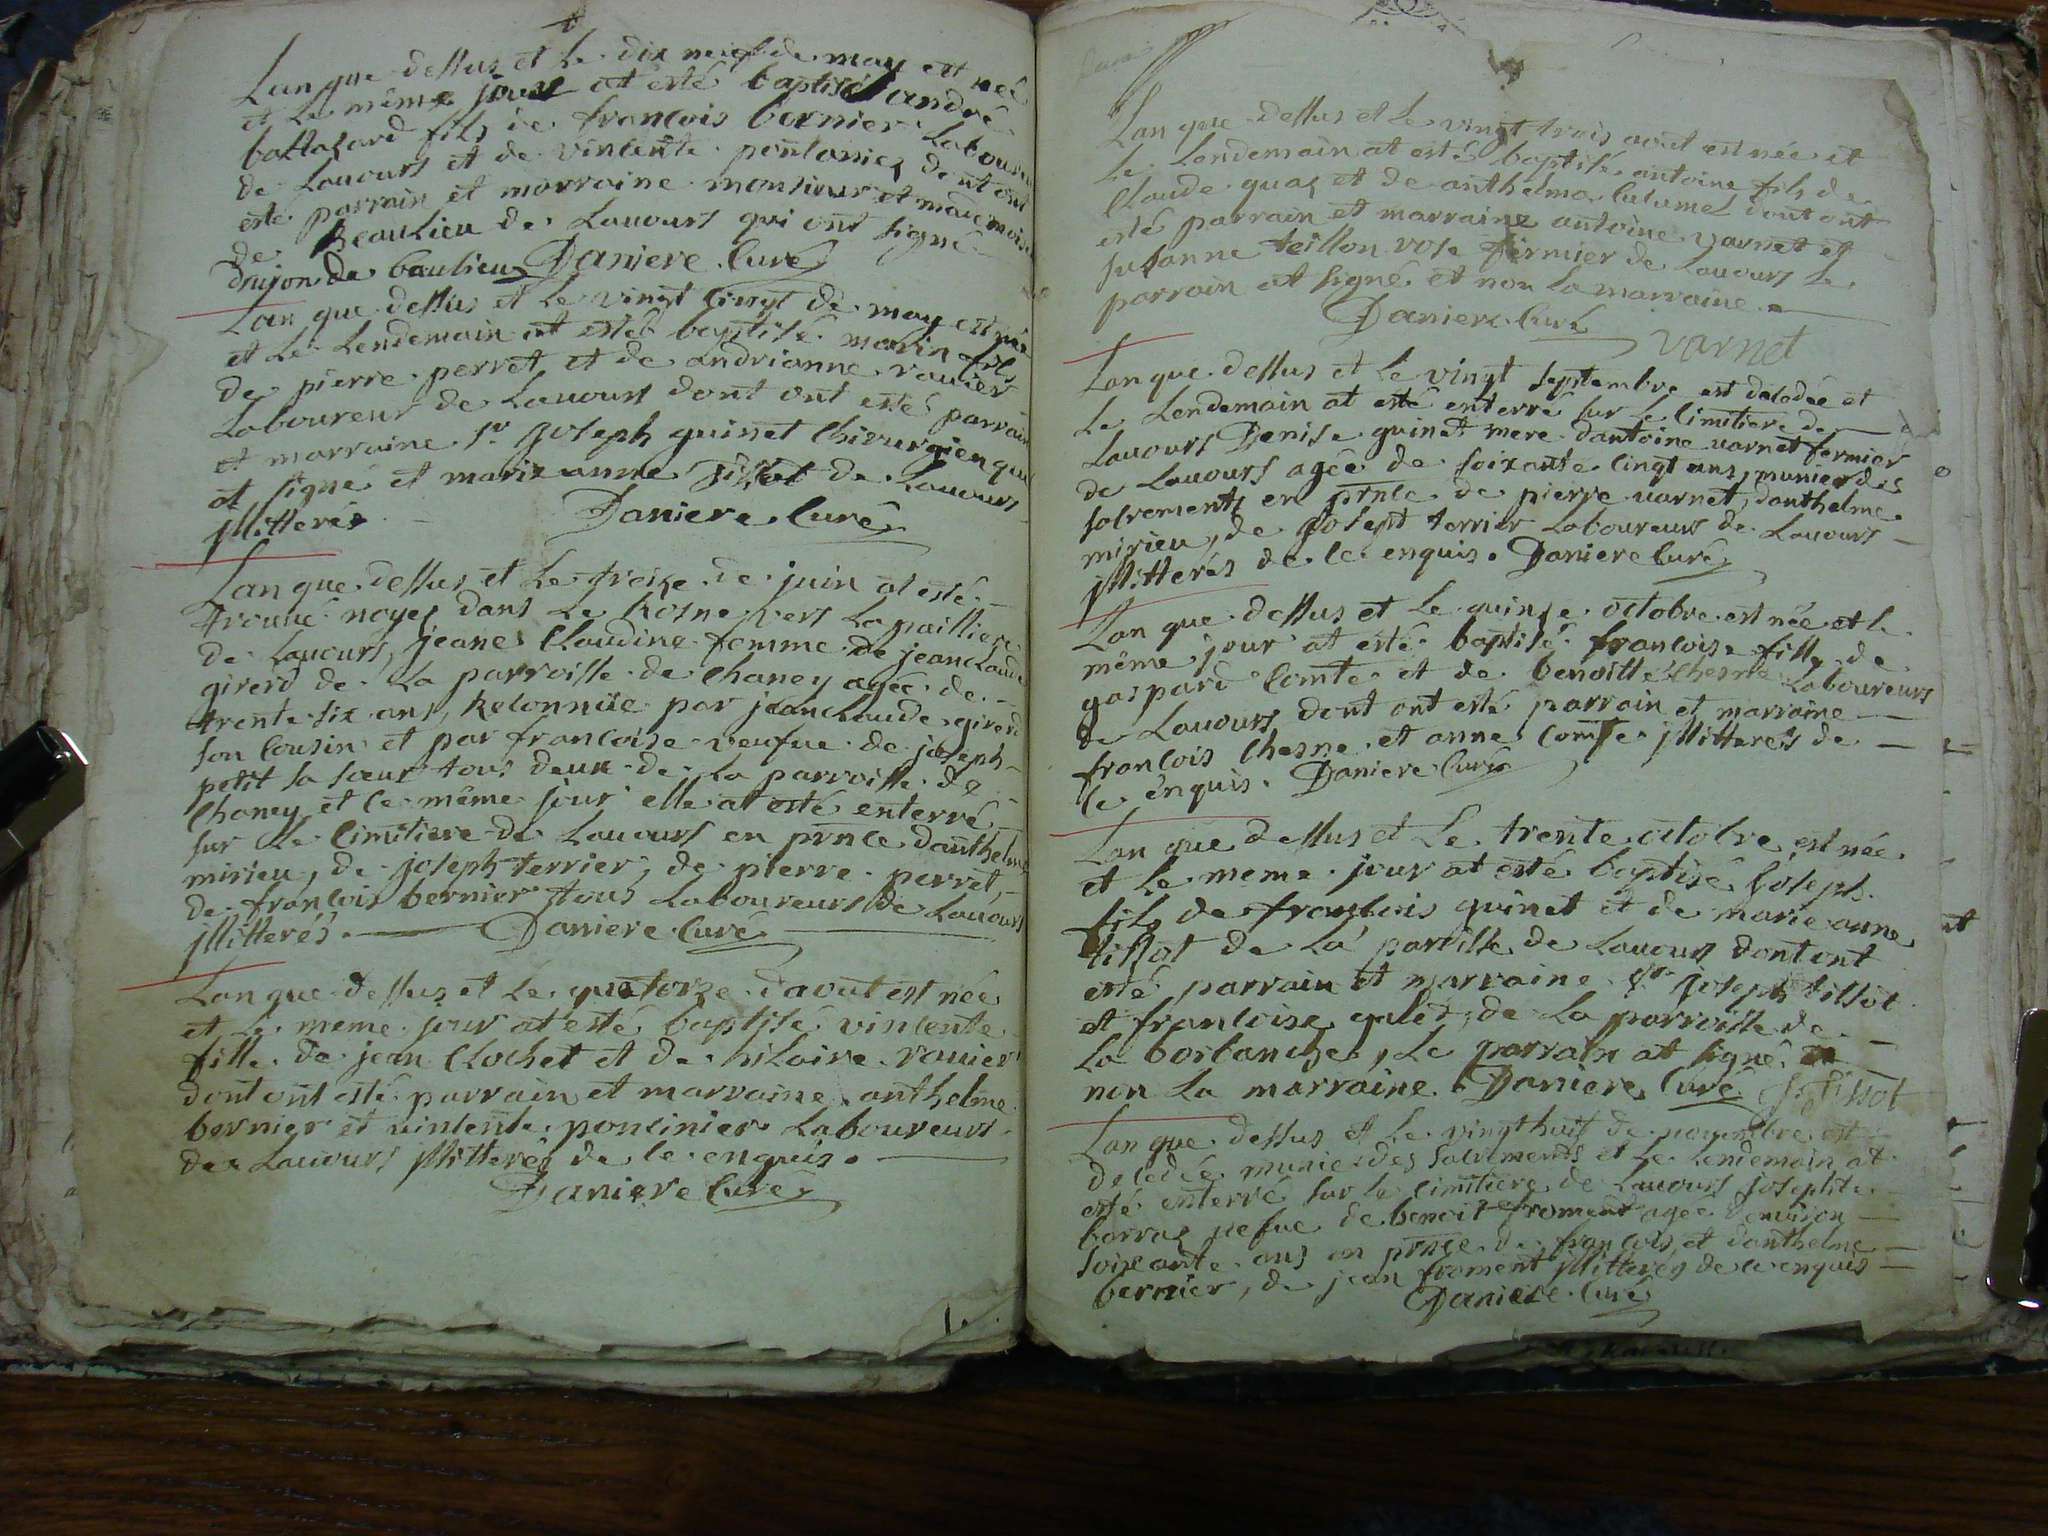 Lan que dessus et Le dix neuf de may est neé
et Le même jour at esté baptisé andré
baltazard fils de francois bernier Laboureur
de Lauours et de vincente poncinier dont ont
esté parrain et marraine monsieur et mademoiselle
de Beaulieu de Lauours qui ont signé
de baulieu Daniere Curé
Lan que dessus et Le vingt cinqt de may est née
et Le Lendemain at esté baptisé marin fils
de pierre perret et de andrianne rauier
Laboureur de Lauours dont ont esté parrain
et marraine Sr Joseph guinet Chirurgien qui
at signé et marie anne Tissot de Lauours
jllitterés Daniere Curé
Lan que dessus et Le treize de juin at esté
trouué noyez dans Le Rosne vers La pailliere
de Lauours, jeane Claudine femme de jean Claude
girerd de La parroisse de Chaney agée de
trente six ans, Reconnüe par jean Claude girerd
son Cousin et par francoise veufue de joseph
petit sa sœur tous deux de La parroisse de
Chaney et ce même jour elle at esté enterré
sur Le Cimitiere de Lauours en prnce danthelme
mirieu, de joseph terrier, de pierre perret,
de francois bernier tous Laboureurs de Lauours
jllitterés. Daniere Curé
Lan que dessus et Le quatorze daout est née
et Le meme jour at esté baptisé vincente
fille de jean Clochet et de hilaire rauier
dont ont esté parrain et marraine anthelme
bernier et vincente poncinier Laboureurs
de Lauours jllitterés de ce enquis.
Daniere Curé
Lan que dessus et Le vingt trois aout est née et
Le Lendemain at esté baptisé antoine fils de
Claude guaz et de anthelma dont ont
esté parrain et marraine antoine varnet et
susanne teillon rose fermier de Lauours Le
parrain at signé et non La marraine
Daniere Curé
varnet
Lan que dessus et Le vingt septembre est décédée et
Le Lendemain at esté enterré sur Le Cimitiere de
Lauours Denise guinet mere dantoine uarnet fermier
de Lauours agée de soixante cingt ans, munie des
sacrements en prnce de pierre uarnet, danthelme
mirieu, de Josept terrier Laboureurs de Lauours
jllitterés de ce enquis. Daniere Curé
Lan que dessus et Le quinse octobre est née et le
même jour at esté baptisé francoise fille de
gaspard Comte et de benoitte Chesne Laboureurs
de Lauours dont ont esté parrain et marraine
francois Chesne et anne Comte jllitterés de
ce enquis. Daniere Curé
Lan que dessus et Le trente octobre est née
et Le meme jour at esté baptisé Joseph
fils de francois guinet et de marie anne
tissot de La paroisse de Lauours dont ont
esté parrain et marraine Sr Joseph tissot
et francoise de La parroisse de
La , Le parrain at signé et
non La marraine. Daniere Curé J. Tissot
Lan que dessus et Le vingt huit de nouembre est
décedée munie des sacrements et Le Lendemain at
esté enterré sur Le Cimitiere de Lauours Josephte
barras uefue de benoit froment agée denuiron
soixante ans en prnce de francois et danthelme
bernier, de jean froment jllitterés de ce enquis
Daniere Curé